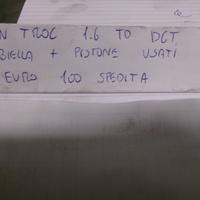 N TROC 1.6 TD DGT
BIELLA + PISTONE USATI
EURO 100 SPEDITA